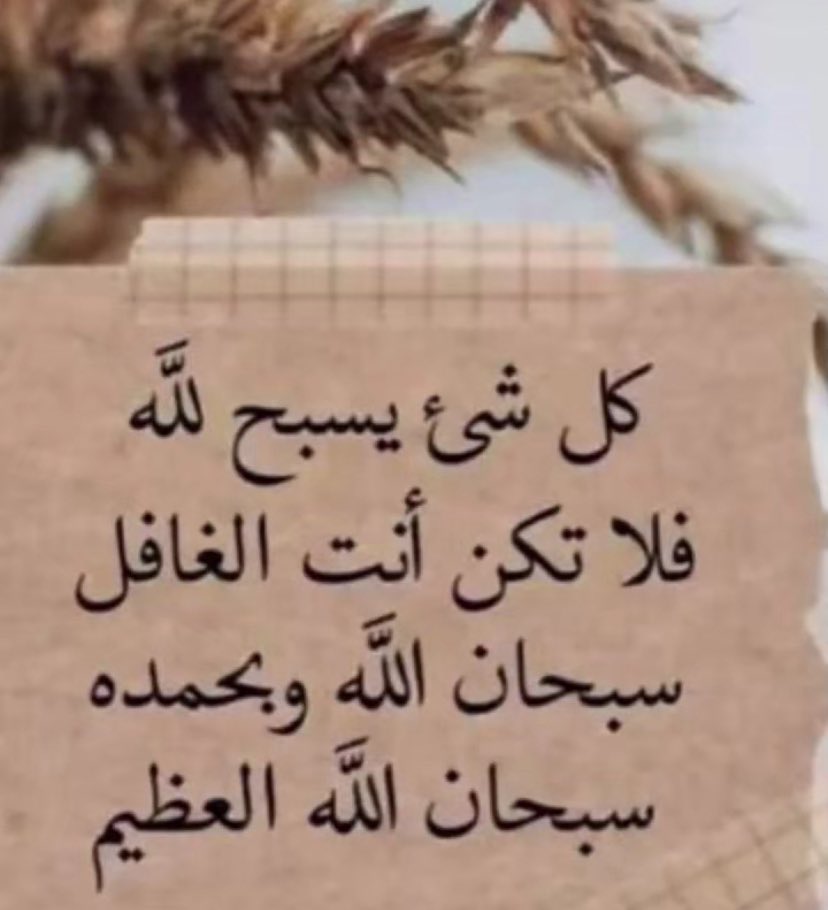 كل شئ يسبح لله
فلا تكن أنت الغافل
سبحان الله وبحمده
سبحان الله العظيم